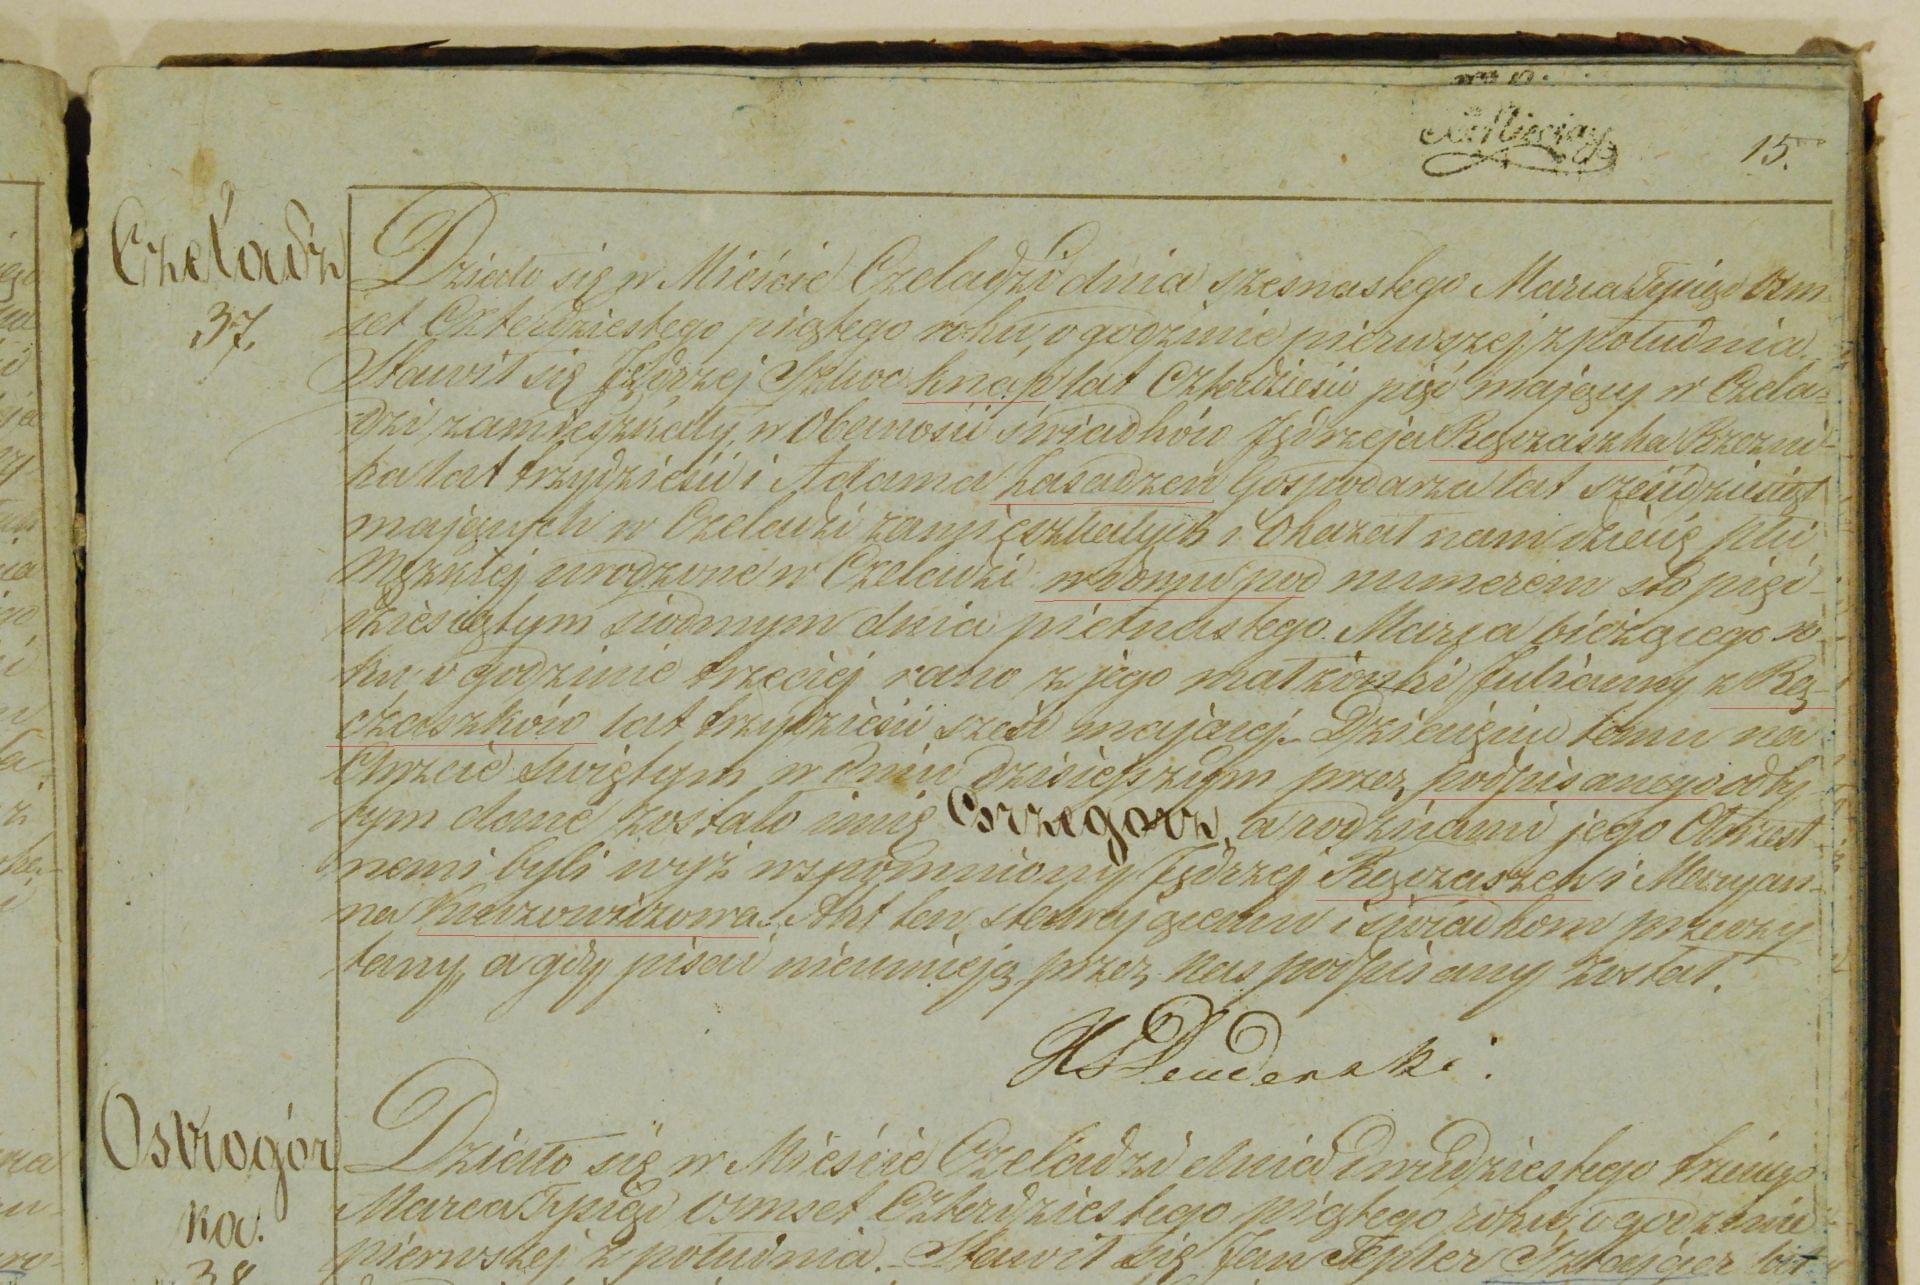 15.
Czeladź
37.
Działo się w Mieście Czeladzi dnia szesnastego Marca Tysiąc Osm-
set Czterdziestego piątego roku, o godzinie pierwszej z południa.
Stawił się Jędrzej knap lat Czterdzieści pięć mający w Czela-
dzi zamieszkały, w Obecności świadków Jędrzeja Ręczaszka Rzezni-
ka lat trzydzieści i Adama Kasadzen Gospodarza lat sześćdziesiąt
mających w Czeladzi zamieszkałych i Okazał nam dziecię płci
Męzkiej urodzone w Czeladzi w domu pod numerem sto pięć-
dziesiątym siódmym dnia piętnastego Marca bieżącego ro-
ku, o godzinie trzeciej rano z jego małżonki Julianny z Rę-
czaszków lat trzydzieści sześć mającej. Dziecięciu temu na
Chrzcie Świętym w dniu dzisiejszym przez podpisanego odby-
tym dane zostało imię Grzegorz, a rodzicami jego Chrzest-
nemi byli wyż wspomniony Jędrzej Ręczaszek i Maryan-
na Akt ten stawającemu i świadkom przeczy-
tany, a gdy pisać nieumieją przez nas podpisany został.
Ostrogór
ka.
38
Działo się w Mieście Czeladzi dnia dwudziestego trzeciego
Marca Tysiąc Osmset Czterdziestego piątego roku, o godzinie
pierwszej z południa. Stawił się Jan Tepler Sztajger lat